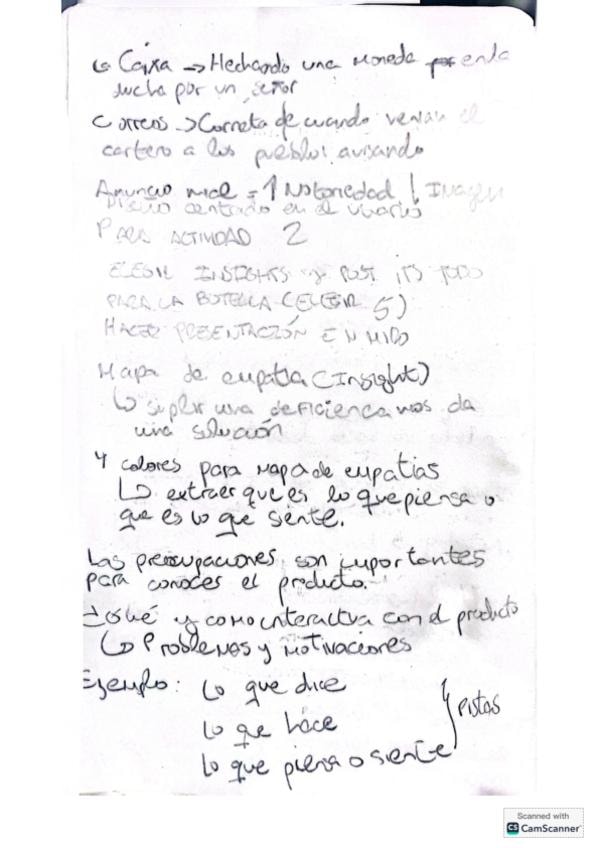 ↳ Caixa → Hechando una moneda en la
lucha por un señor
Correos → Corneta de cuando venían el
cartero a los pueblos avisando
Anuncio = ↑ Notoriedad ↓ Imagen
Diseño centrado en el usuario
PARA ACTIVIDAD 2
ELEGIR INSIGHTS y POST ITS TODO
PARA LA BOTELLA (ELEGIR 5)
HACER PRESENTACIÓN EN MIRO
Mapa de empatía (Insight)
↳ suplir una deficiencia nos da
una solución
4 colores para mapa de empatías
↳ extraer que es lo que piensa o
que es lo que siente.
Las preocupaciones son importantes
para conocer el producto.
¿Qué y como interactua con el producto
↳ Problemas y motivaciones
Ejemplo: Lo que dice
Lo que hace
Lo que piensa o siente
} Pistas
Scanned with
CS CamScanner